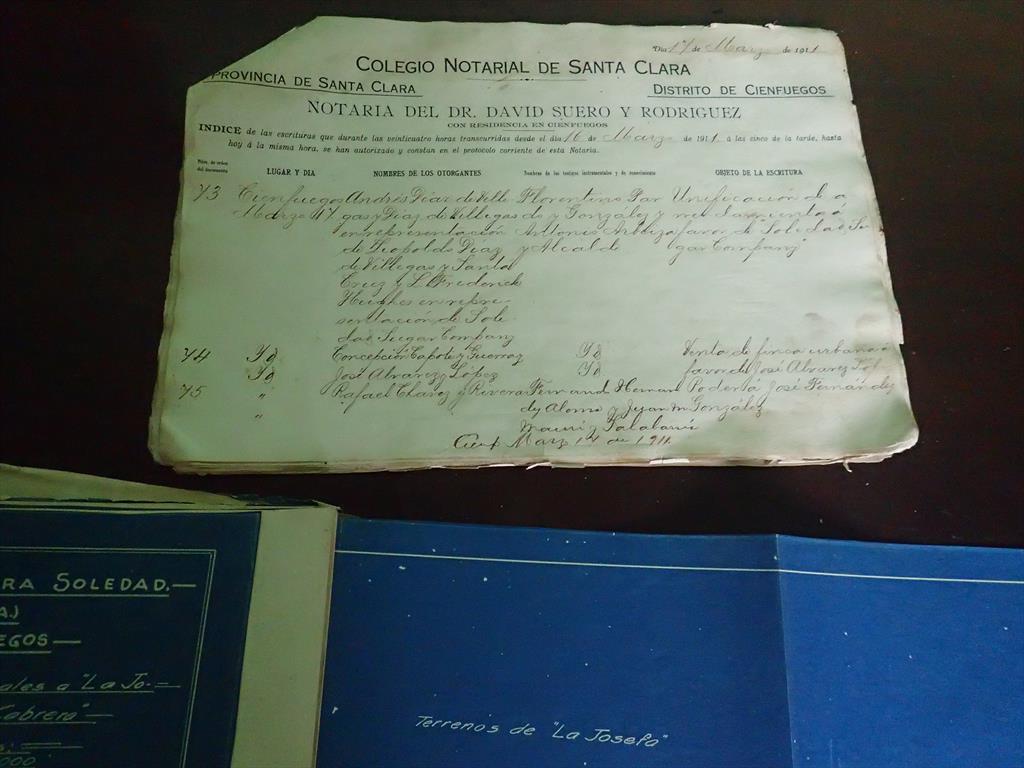 Día 17 de Marzo de 1911
COLEGIO NOTARIAL DE SANTA CLARA
PROVINCIA DE SANTA CLARA
DISTRITO DE CIENFUEGOS
NOTARIA DEL DR. DAVID SUERO Y RODRIGUEZ
CON RESIDENCIA EN CIENFUEGOS
INDICE de las escrituras que durante las veinticuatro horas transcurridas desde el día 16 de Marzo de 1911. á las cinco de la tarde, hasta
hoy á la misma hora, se han autorizado y constan en el protocolo corriente de esta Notaría.
Núm. de orden
del documento
LUGAR Y DIA
NOMBRES DE LOS OTORGANTES
Nombres de los testigos instrumentales y de conocimiento
OBJETO DE LA ESCRITURA
73 Cienfuegos Andrés Díaz de Ville Florentino Par Unificación de a
Marzo 17 gas y Díaz de Villegas do y González y favor de "Soledad Su
en representación Antonio y Alcalde gar Company"
de Leopoldo Díaz
de Villegas y Santa
Cruz y L. Frederick
Hughes en repre-
sentación de Sole
dad Sugar Company
74 Yd Concepción Capote y Guerra Yd Venta de finca urbana a
Yd José Alvarez y López favor de José Alvarez Lop
75 " Rafael Chavez y Rivera Fernand Hernan Poder á José Fernández
" dy Alomá y Juan M. González
Cienf Marz 17 de 1911.
RA SOLEDAD.—
A.)
EGOS—
ales a "La Jo-
Cabrera"—
000
Terrenos de "La Josefa"